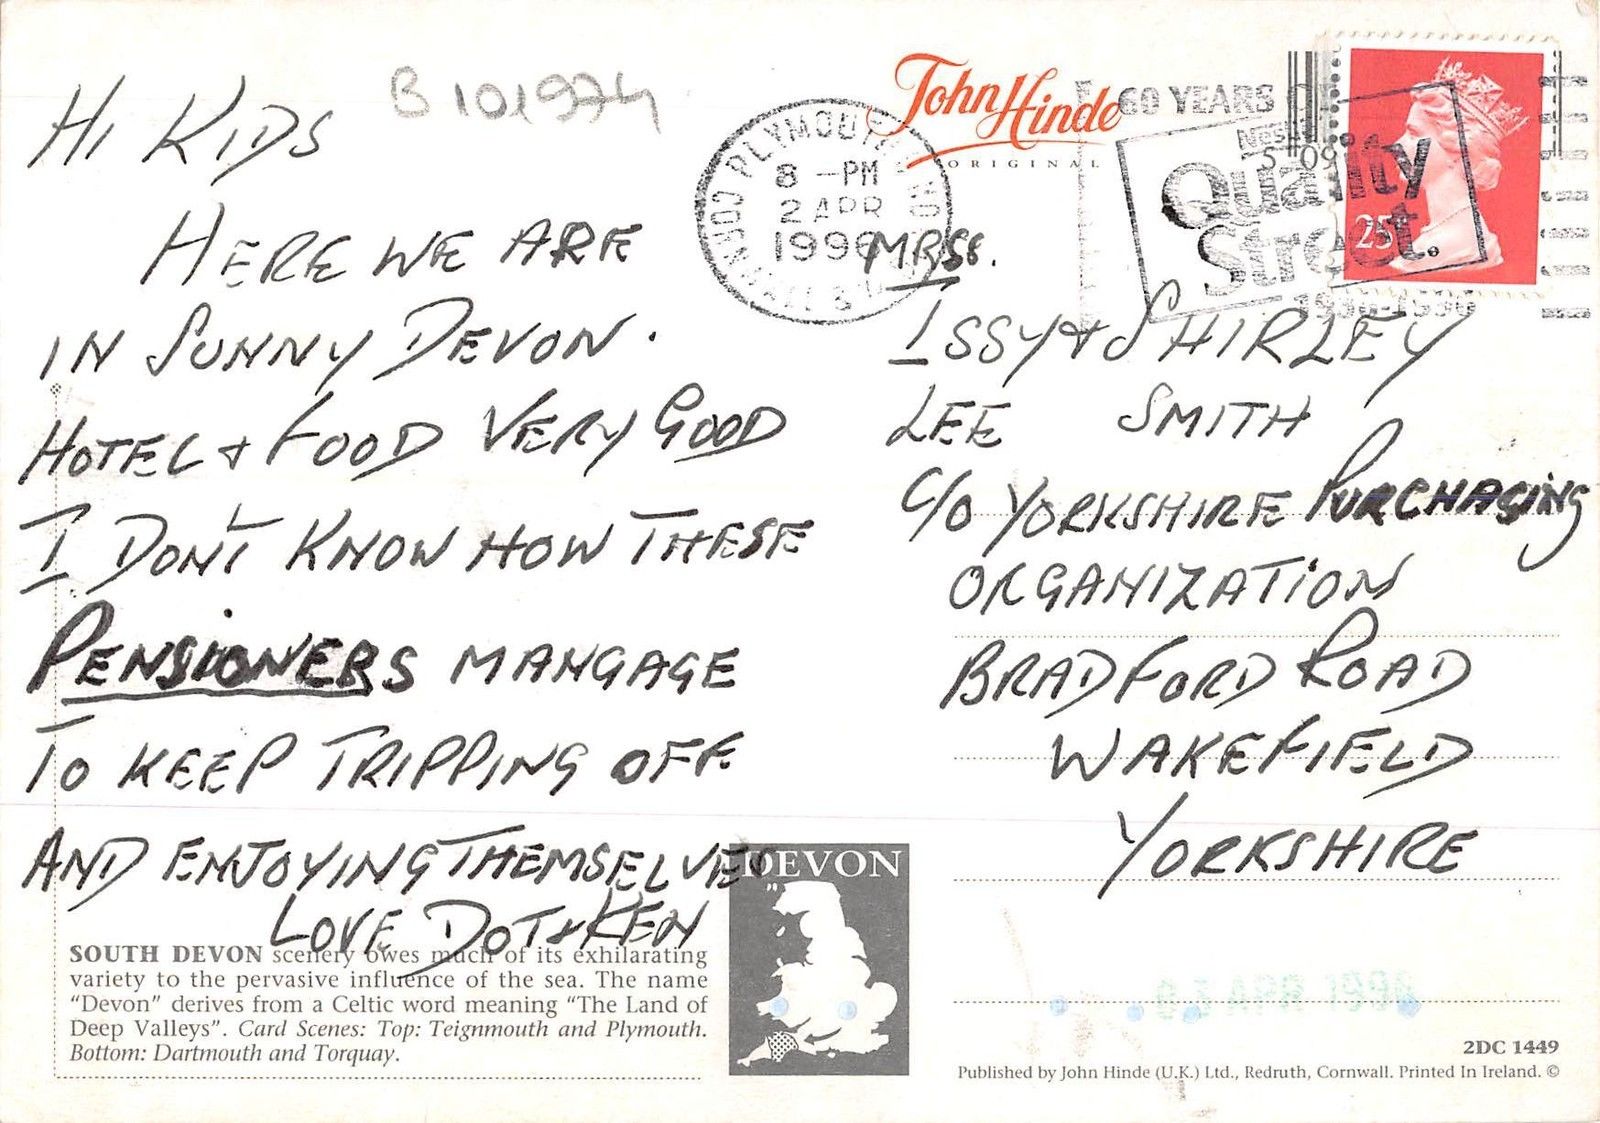 B101974
HI KIDS
HERE WE ARE
IN SUNNY DEVON.
HOTEL & FOOD VERY GOOD
I DON'T KNOW HOW THESE
PENSIONERS MANGAGE
TO KEEP TRIPPING OFF
AND ENJOYING THEMSELVES
LOVE DOT & KEN
SOUTH DEVON scenery owes much of its exhilarating
variety to the pervasive influence of the sea. The name
"Devon" derives from a Celtic word meaning "The Land of
Deep Valleys". Card Scenes: Top: Teignmouth and Plymouth.
Bottom: Dartmouth and Torquay.
DEVON
John Hinde
ORIGINAL
PLYMOUTH
CORNWALL &
8 -PM
2 APR
1996
60 YEARS
Quality
Street.
1936-1996
25
MRSS.
ISSY & SHIRLEY
LEE SMITH
C/O YORKSHIRE PURCHASING
ORGANIZATION
BRADFORD ROAD
WAKEFIELD
YORKSHIRE
03 APR 1996
2DC 1449
Published by John Hinde (U.K.) Ltd., Redruth, Cornwall. Printed In Ireland. ©